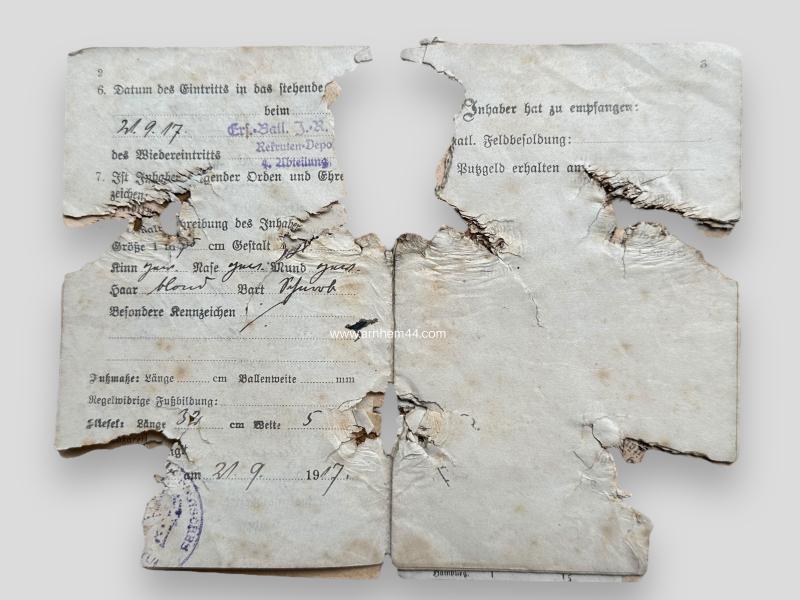 2
6. Datum des Eintritts in das stehende
beim
21.9.17. Ers.-Batl. J.-R.
Rekruten-Depo
des Wiedereintritts 4. Abteilung
7. Ist Inhaber gender Orden und Ehre
zeichen
hreibung des Inhab
Größe 1 cm Gestalt
Kinn gew. Nase gew. Mund gew.
Haar blond Bart Schnurrb
Besondere Kennzeichen
Fußmaße: Länge cm Ballenweite mm
Regelwidrige Fußbildung:
Stiefel: Länge 32 cm Weite 5
am 21. 9. 1917.
3
Inhaber hat zu empfangen:
natl. Feldbesoldung:
Putzgeld erhalten am
www.arnhem44.com
Hamburg.